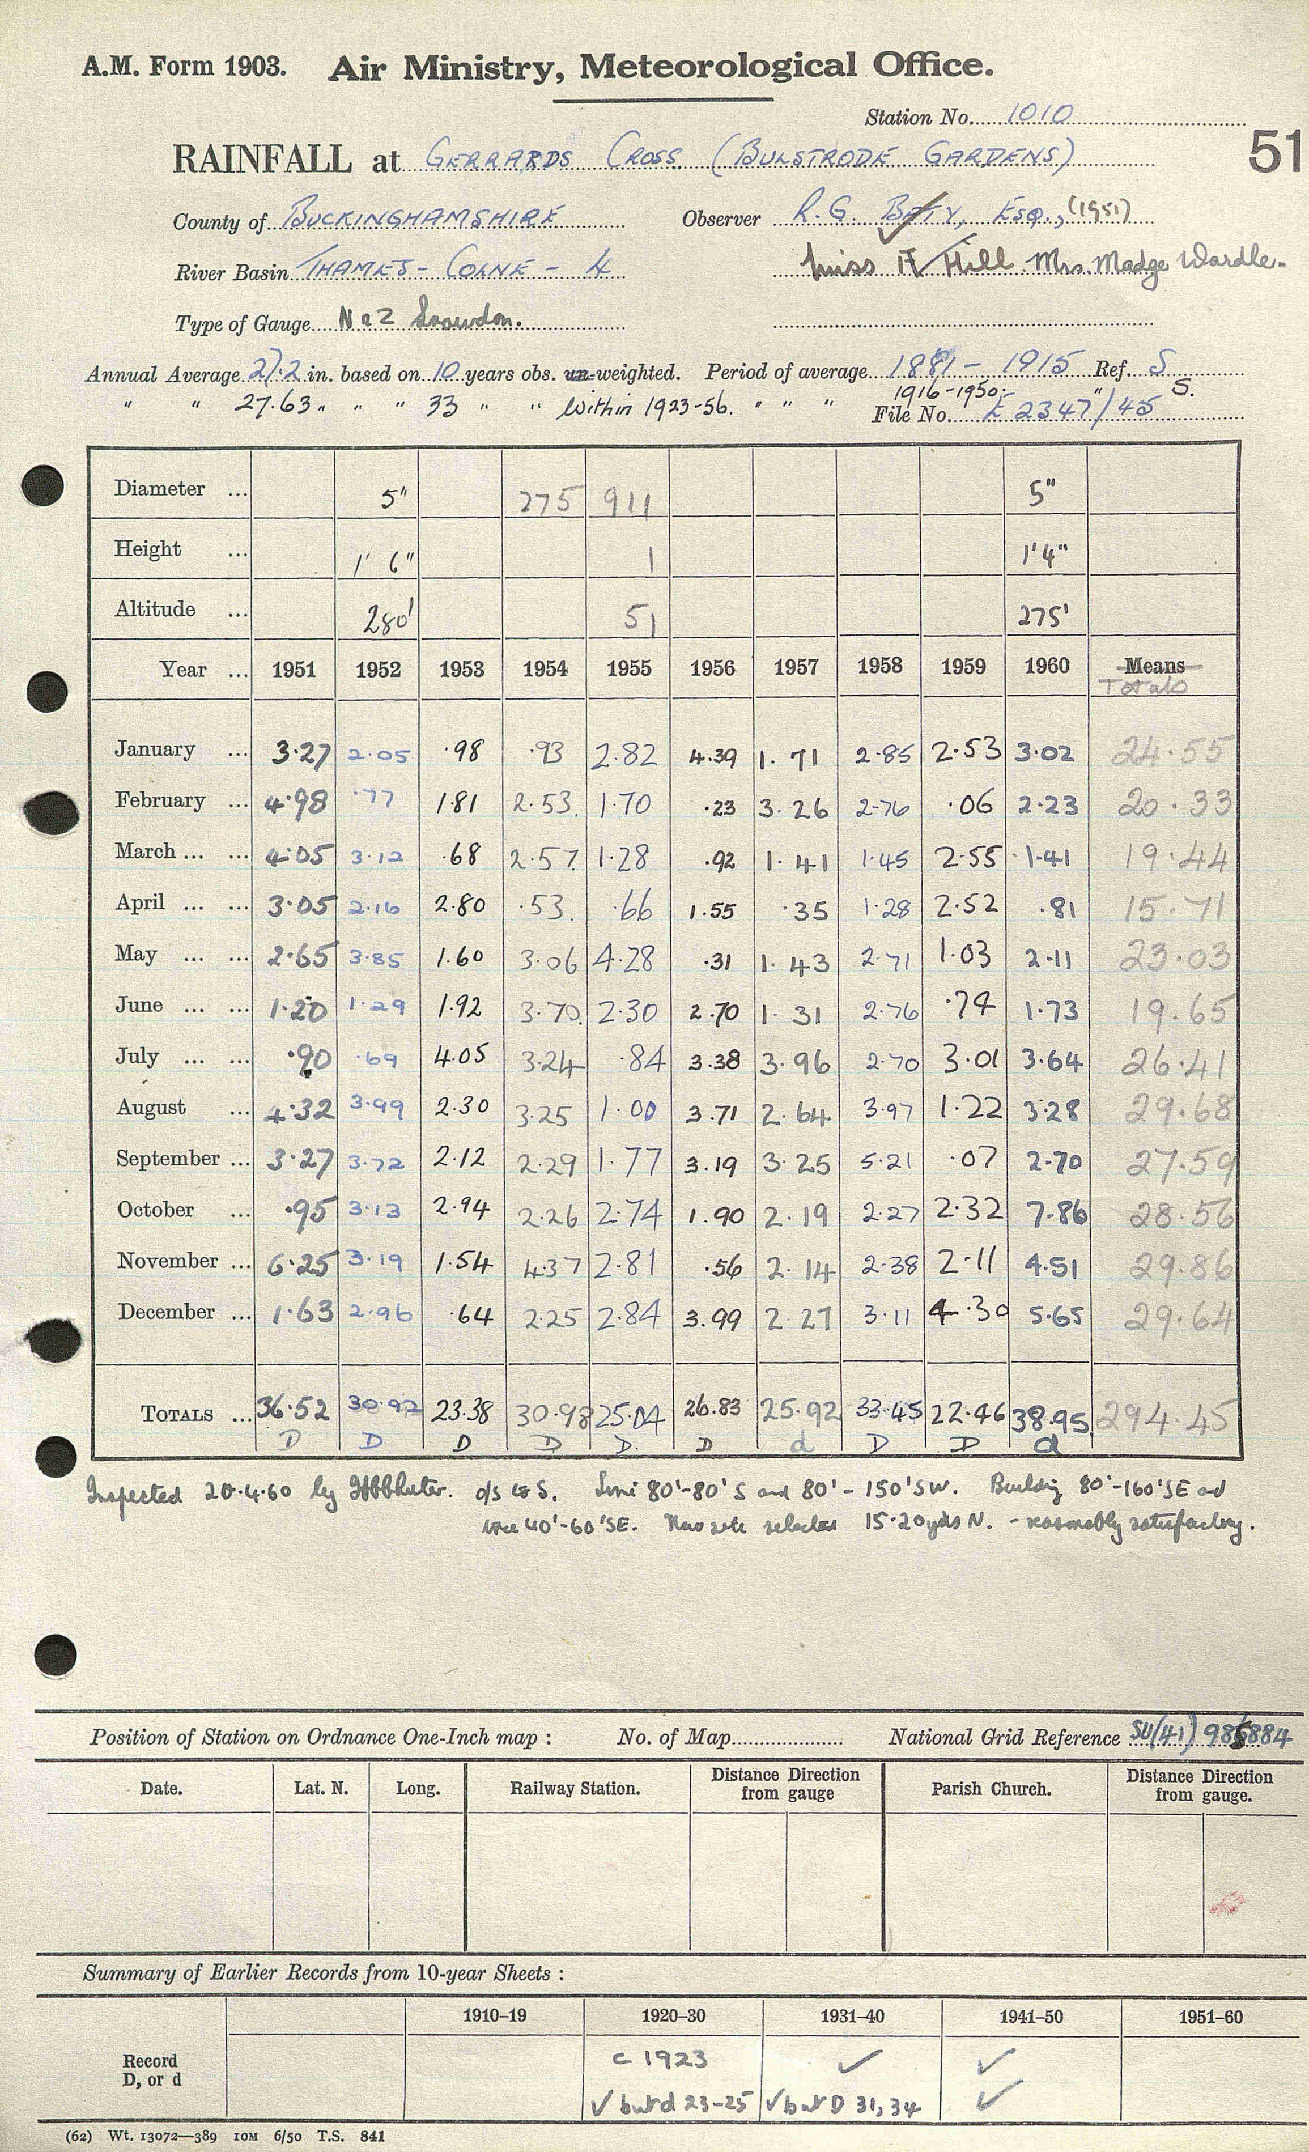 A.M. Form 1903. Air Ministry, Meteorological Office.
Station No. 1010
51
RAINFALL at GERRARDS CROSS (BULSTRODE GARDENS)
County of BUCKINGHAMSHIRE Observer R.G. BETY, ESQ., (1951)
River Basin THAMES - COLNE - 4 Miss F Hill. Mrs. Madge Wardle.
Type of Gauge No 2 Snowdon.
Annual Average 27.2 in. based on 10 years obs. un-weighted. Period of average 1881 - 1915 Ref. S
" " 27.63 " " " 33 " " Within 1923-56. " " " 1916-1950 " S.
File No. E 2347/45
Diameter ... 5" 275 911 5"
Height ... 1' 6" 1 1'4"
Altitude ... 280' 51 275'
Year ... 1951 1952 1953 1954 1955 1956 1957 1958 1959 1960 Means
Totals
January ... 3.27 2.05 .98 .93 2.82 4.39 1.71 2.85 2.53 3.02 24.55
February ... 4.98 .77 1.81 2.53 1.70 .23 3.26 2.76 .06 2.23 20.33
March ... ... 4.05 3.12 .68 2.57 1.28 .92 1.41 1.45 2.55 1.41 19.44
April ... ... 3.05 2.16 2.80 .53 .66 1.55 .35 1.28 2.52 .81 15.71
May ... ... 2.65 3.85 1.60 3.06 4.28 .31 1.43 2.71 1.03 2.11 23.03
June ... ... 1.20 1.29 1.92 3.70 2.30 2.70 1.31 2.76 .74 1.73 19.65
July ... ... .90 .69 4.05 3.24 .84 3.38 3.96 2.70 3.01 3.64 26.41
August ... 4.32 3.99 2.30 3.25 1.00 3.71 2.64 3.97 1.22 3.28 29.68
September ... 3.27 3.72 2.12 2.29 1.77 3.19 3.25 5.21 .07 2.70 27.59
October ... .95 3.13 2.94 2.26 2.74 1.90 2.19 2.27 2.32 7.86 28.56
November ... 6.25 3.19 1.54 4.37 2.81 .56 2.14 2.38 2.11 4.51 29.86
December ... 1.63 2.96 .64 2.25 2.84 3.99 2.27 3.11 4.30 5.65 29.64
TOTALS ... 36.52 30.92 23.38 30.98 25.04 26.83 25.92 33.45 22.46 38.95 294.45
D D D D D D d D D d
Inspected 20.4.60 by o/s S. 80'-80'S and 80'-150'SW. Building 80'-160'SE and
tree 40'-60'SE. New site selected 15-20yds N. - reasonably satisfactory.
Position of Station on Ordnance One-Inch map : No. of Map National Grid Reference SU(41) 985884
Date. Lat. N. Long. Railway Station. Distance from gauge Direction Parish Church. Distance from gauge. Direction
Summary of Earlier Records from 10-year Sheets :
1910–19 1920–30 1931–40 1941–50 1951–60
Record D, or d
c 1923 ✓ ✓
✓ but d 23-25 ✓ but D 31, 34 ✓
(62) Wt. 13072—389 10M 6/50 T.S. 841